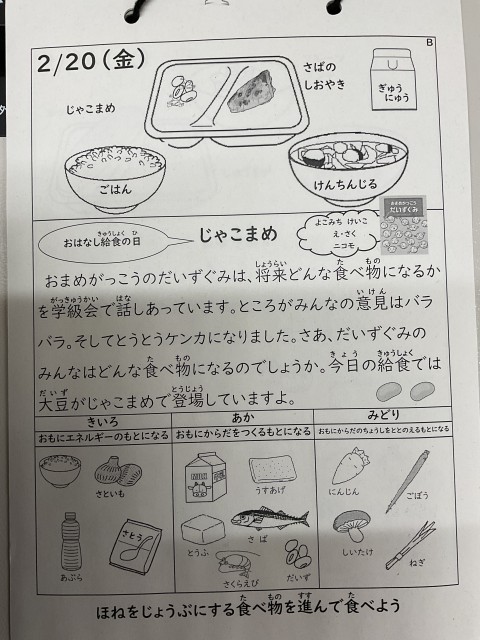 B
2/20(金)
さばの
しおやき
ぎゅう
にゅう
じゃこまめ
ごはん
けんちんじる
おはなし給食の日
じゃこまめ
よこみち けいこ
え・さく
ニコモ
おまめがっこう
だいずぐみ
おまめがっこうのだいずぐみは、将来どんな食べ物になるか
を学級会で話しあっています。ところがみんなの意見はバラ
バラ。そしてとうとうケンカになりました。さあ、だいずぐみの
みんなはどんな食べ物になるのでしょうか。今日の給食では
大豆がじゃこまめで登場していますよ。
きいろ
あか
みどり
おもにエネルギーのもとになる
おもにからだをつくるもとになる
おもにからだのちょうしをととのえるもとになる
さといも
あぶら
さとう
MILK
うすあげ
とうふ
さば
さくらえび
だいず
にんじん
ごぼう
しいたけ
ねぎ
ほねをじょうぶにする食べ物を進んで食べよう